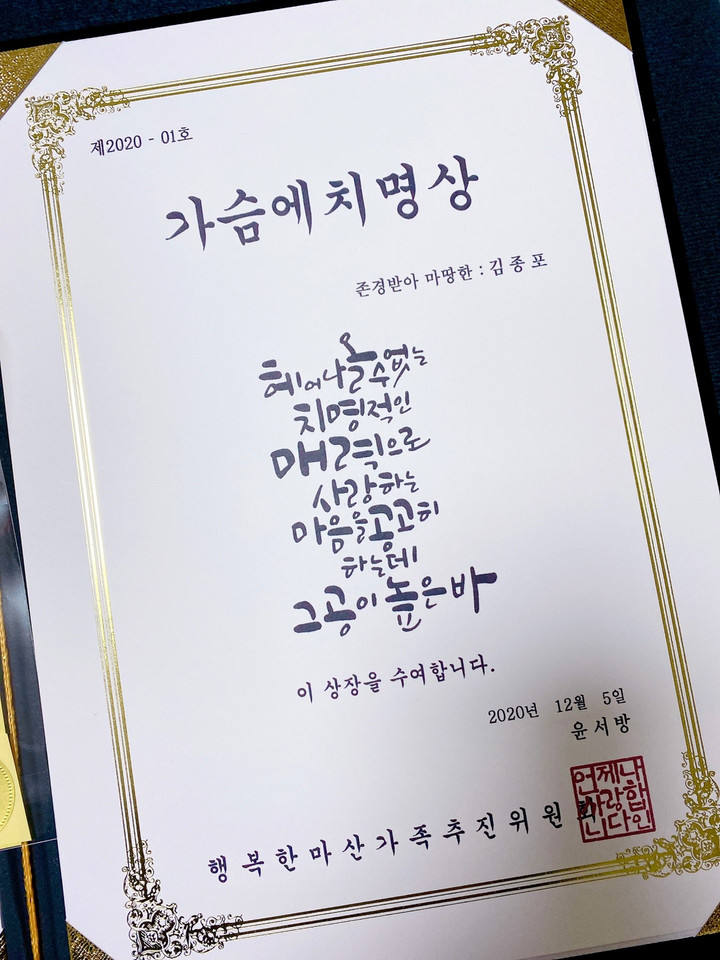 제2020 - 01호
가슴에치명상
존경받아 마땅한 : 김종포
헤어나올수없는
치명적인
매력으로
사랑하는
마음을공고히
하는데
그공이높은바
이 상장을 수여합니다.
2020년 12월 5일
윤서방
행복한마산가족추진위원회
언제나
사랑합
니다인